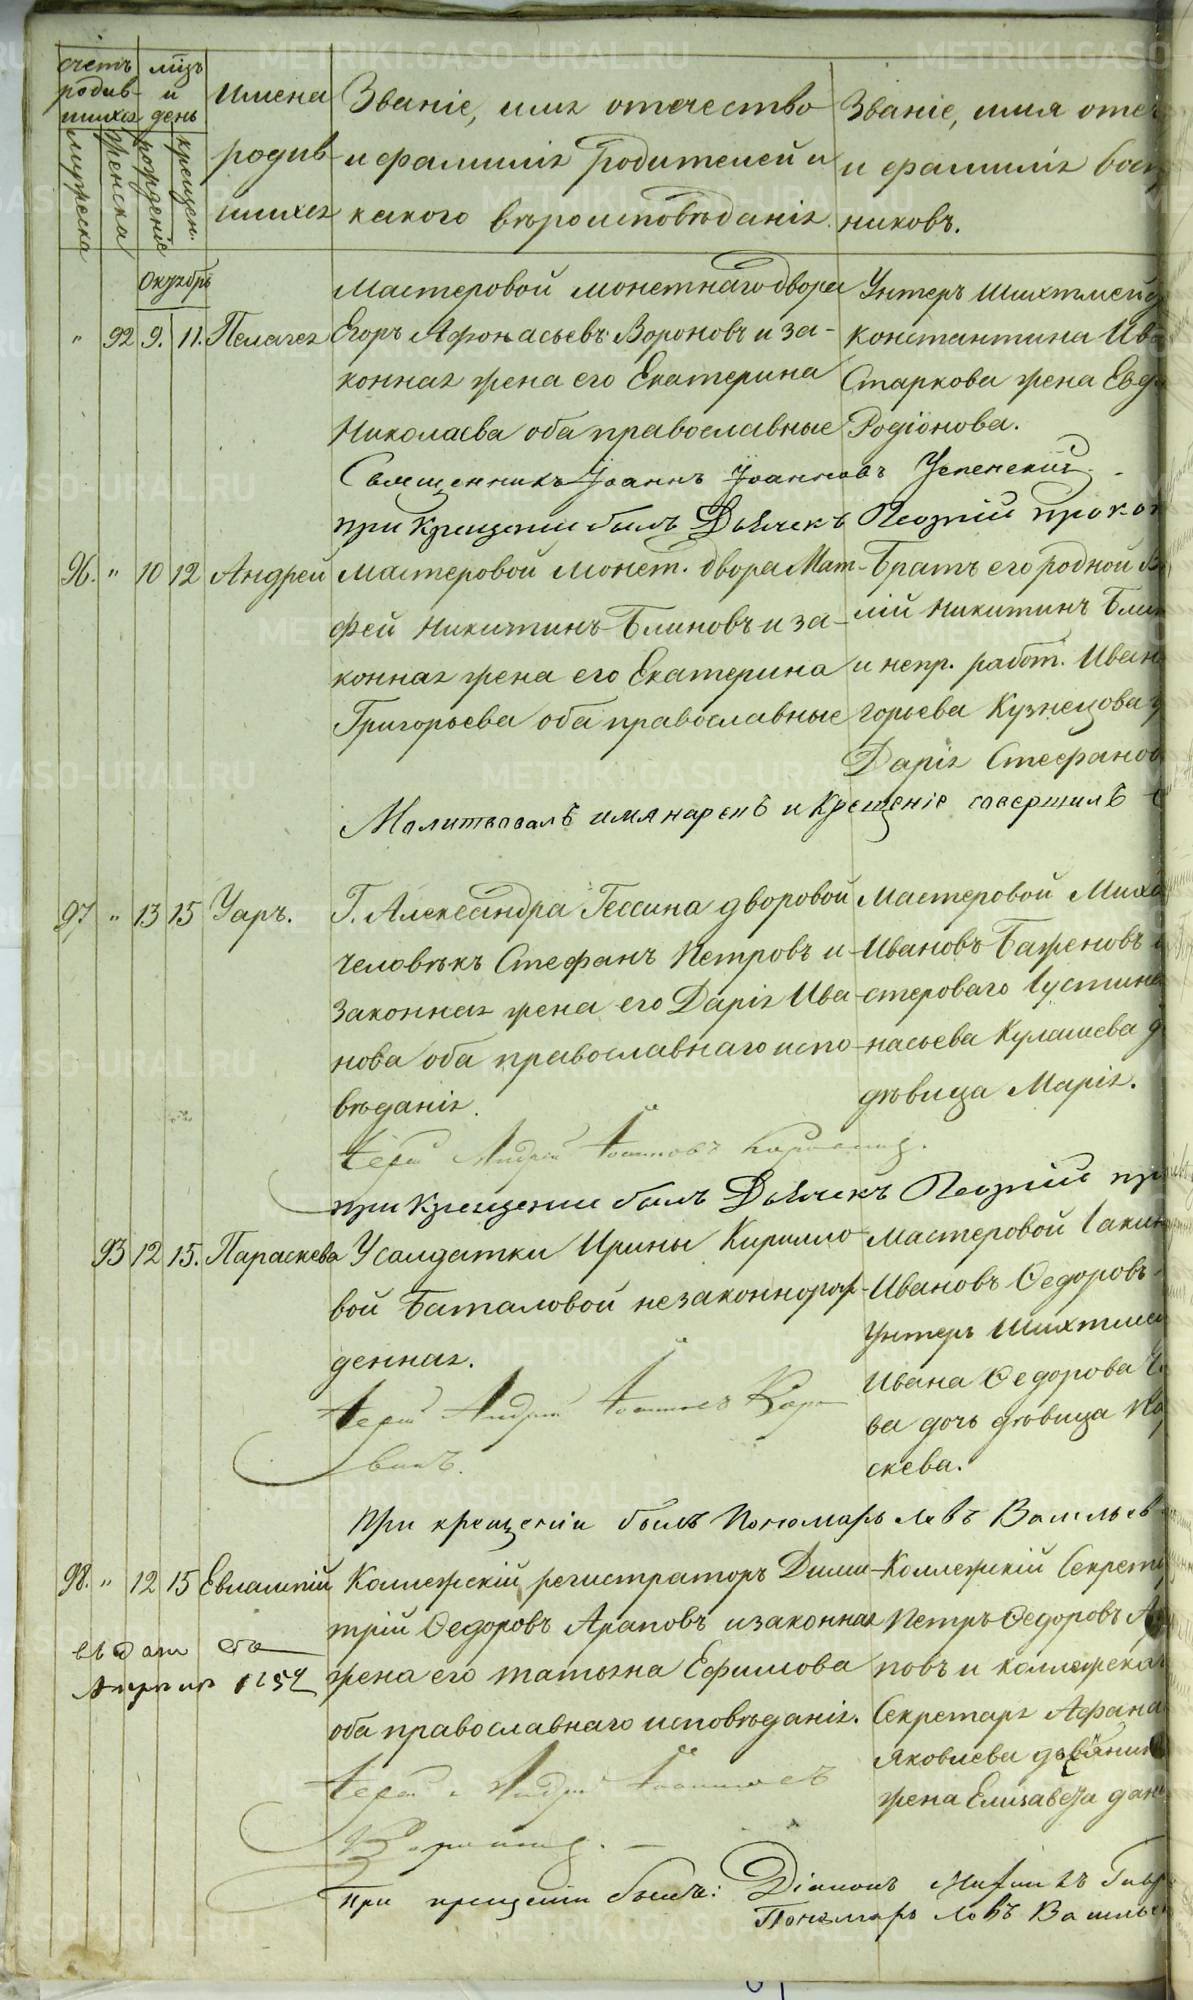 счетъ родив-шихся
мѣсяцъ и день
Имена родив-шихся
Званіе, имя отечество и фамилія родителей и какого вѣроисповѣданія.
Званіе, имя отеч
и фамилія
никовъ.
мужеска
женска
рожденіе
крещен.
Октябрь
" 92 9. 11. Пелагея
Мастеровой монетнаго двора
Егоръ Афонасьевъ Вороновъ и за-
конная жена его Екатерина
Николаева оба православные
Унтеръ Шихтмей
Константина Ива
Старкова жена Евд
Родіонова.
Священникъ Іоаннъ Іоанновъ Успенскій
при крещеніи былъ Дьячекъ Георгій Прокоп
96. " 10 12 Андрей
мастеровой монет. двора Мат-
фей Никитинъ Блиновъ и за-
конная жена его Екатерина
Григорьева оба православные
Братъ его родной
лій Никитинъ Блин
и непр. работ. Иван
горьева Кузнецова
Дарія Стефанов
Молитвовалъ имя нарекъ и крещеніе совершилъ
97 " 13 15 Уаръ.
Г. Александра Гессина дворовой
человѣкъ Стефанъ Петровъ и
законная жена его Дарія Ива-
нова оба православнаго испо-
вѣданія.
Мастеровой Миха
Ивановъ Баженовъ
стероваго Іустина
насьева Кулашева д
дѣвица Марія.
Іерей Андрей Іоанновъ
при крещеніи былъ Дьячекъ Георгій пр
93 12 15. Параскева
У салдатки Ирины Кирилло-
вой Баталовой незаконнорож-
денная.
Мастеровой Іаки
Ивановъ Ѳедоровъ
Унтеръ Шихтмей
Ивана Ѳедорова
ва дочь дѣвица Па
скева.
Іерей Андрей Іоанновъ
При крещеніи былъ Пономарь Левъ Васильев
98. " 12 15 Евлампій
Коллежскій регистраторъ Дими-
трій Ѳедоровъ Араповъ и законная
жена его Татьяна Ефимова
оба православнаго исповѣданія.
Коллежскій Секрета
Петръ Ѳедоровъ Ар
повъ и коллежска
Секретаря Афана
Яковлева
жена Елизавета дан
Іерей Андрей Іоанновъ
При крещеніи были: Діаконъ
Пономарь Левъ Василье
METRIKI.GASO-URAL.RU